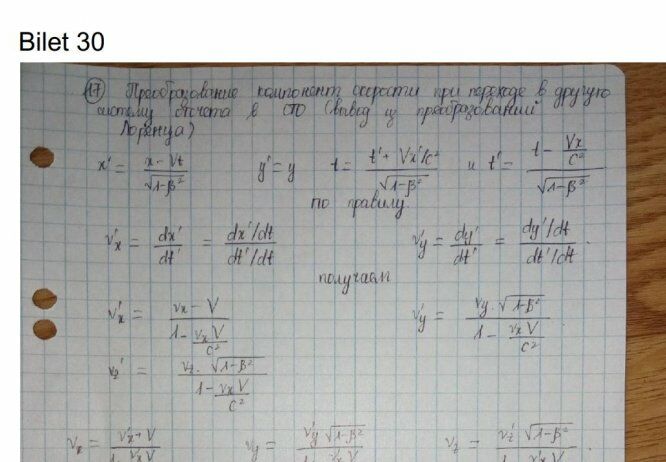 Bilet 30
17 Преобразование компонент скорости при переходе в другую
систему отсчета в СТО (вывод из преобразований
Лоренца)
x' = (x - Vt)/√(1-β²)   y' = y   t = (t' + Vx'/c²)/√(1-β²)   и   t' = (t - Vx/c²)/√(1-β²)
по правилу
v'x = dx'/dt' = (dx'/dt)/(dt'/dt)   v'y = dy'/dt' = (dy'/dt)/(dt'/dt).
получаем
v'x = (vx - V)/(1 - vxV/c²)   v'y = (vy·√(1-β²))/(1 - vxV/c²).
vz' = (vz·√(1-β²))/(1 - vxV/c²)
vx = (v'x + V)/   vy = (v'y √(1-β²))/   vz = (vz' √(1-β²))/